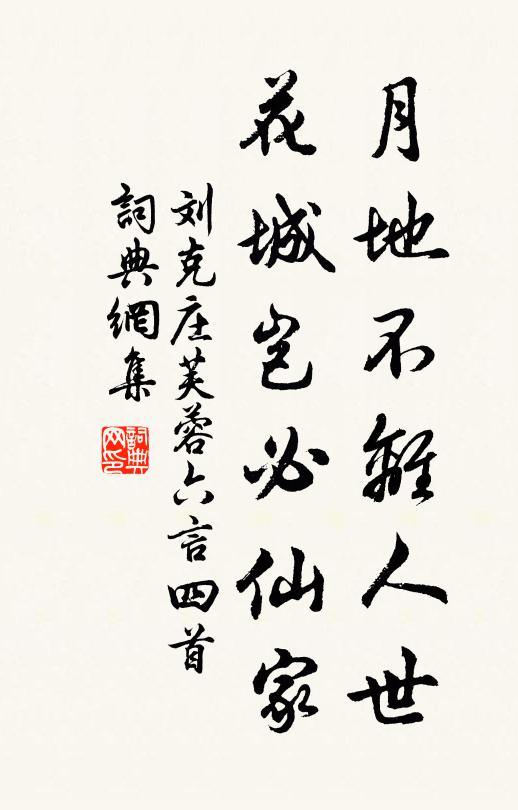 月地不離人世
花城岂必仙家
刘克庄芙蓉六言四首
詞典網集
詞典网印